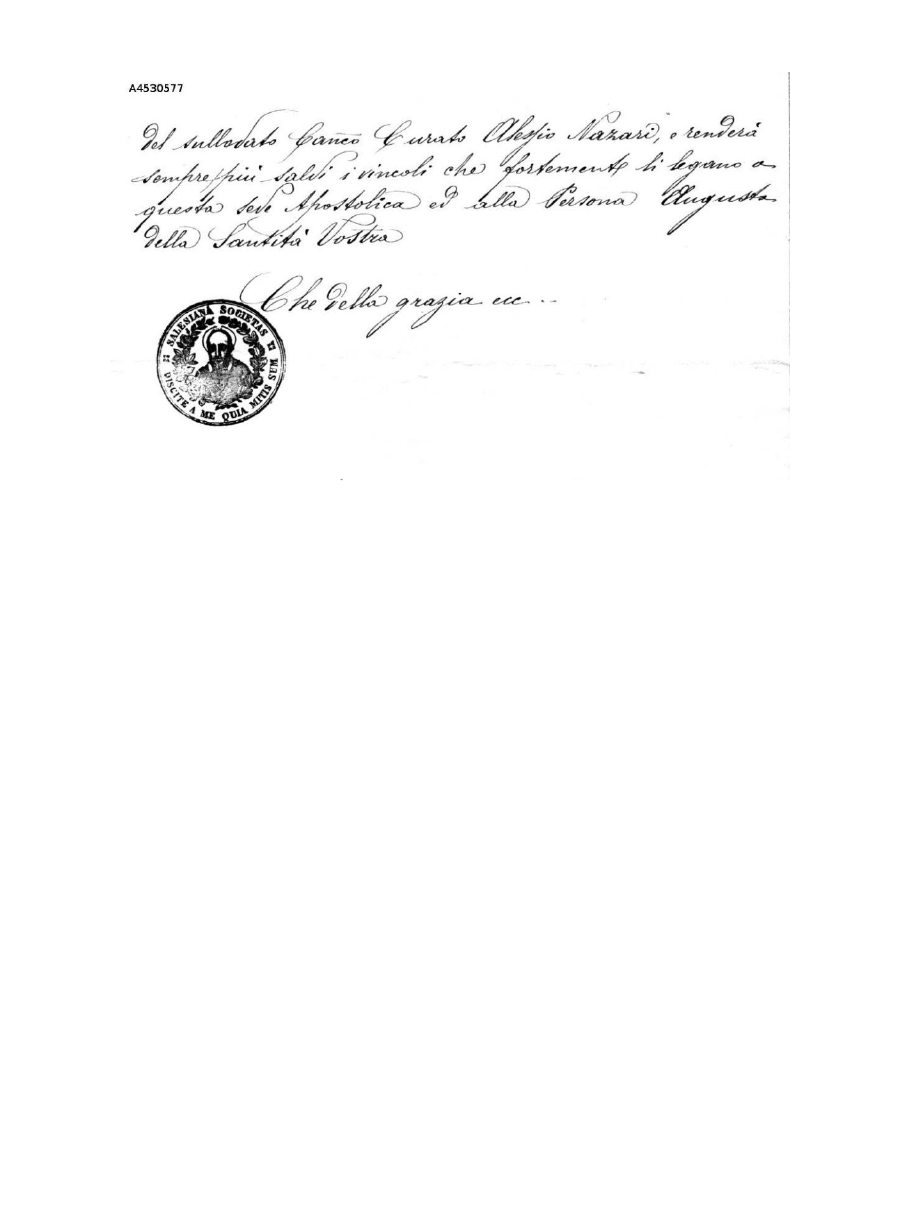 A4530577
del sullodato Canco Curato Alessio Nazari, e renderà
sempre più saldi i vincoli che fortemente li legano a
questa sede Apostolica ed alla Persona Augusta
della Santità Vostra
Che della grazia ecc...
SALESIANA SOCIETAS
DISCITE A ME QUIA MITIS SUM